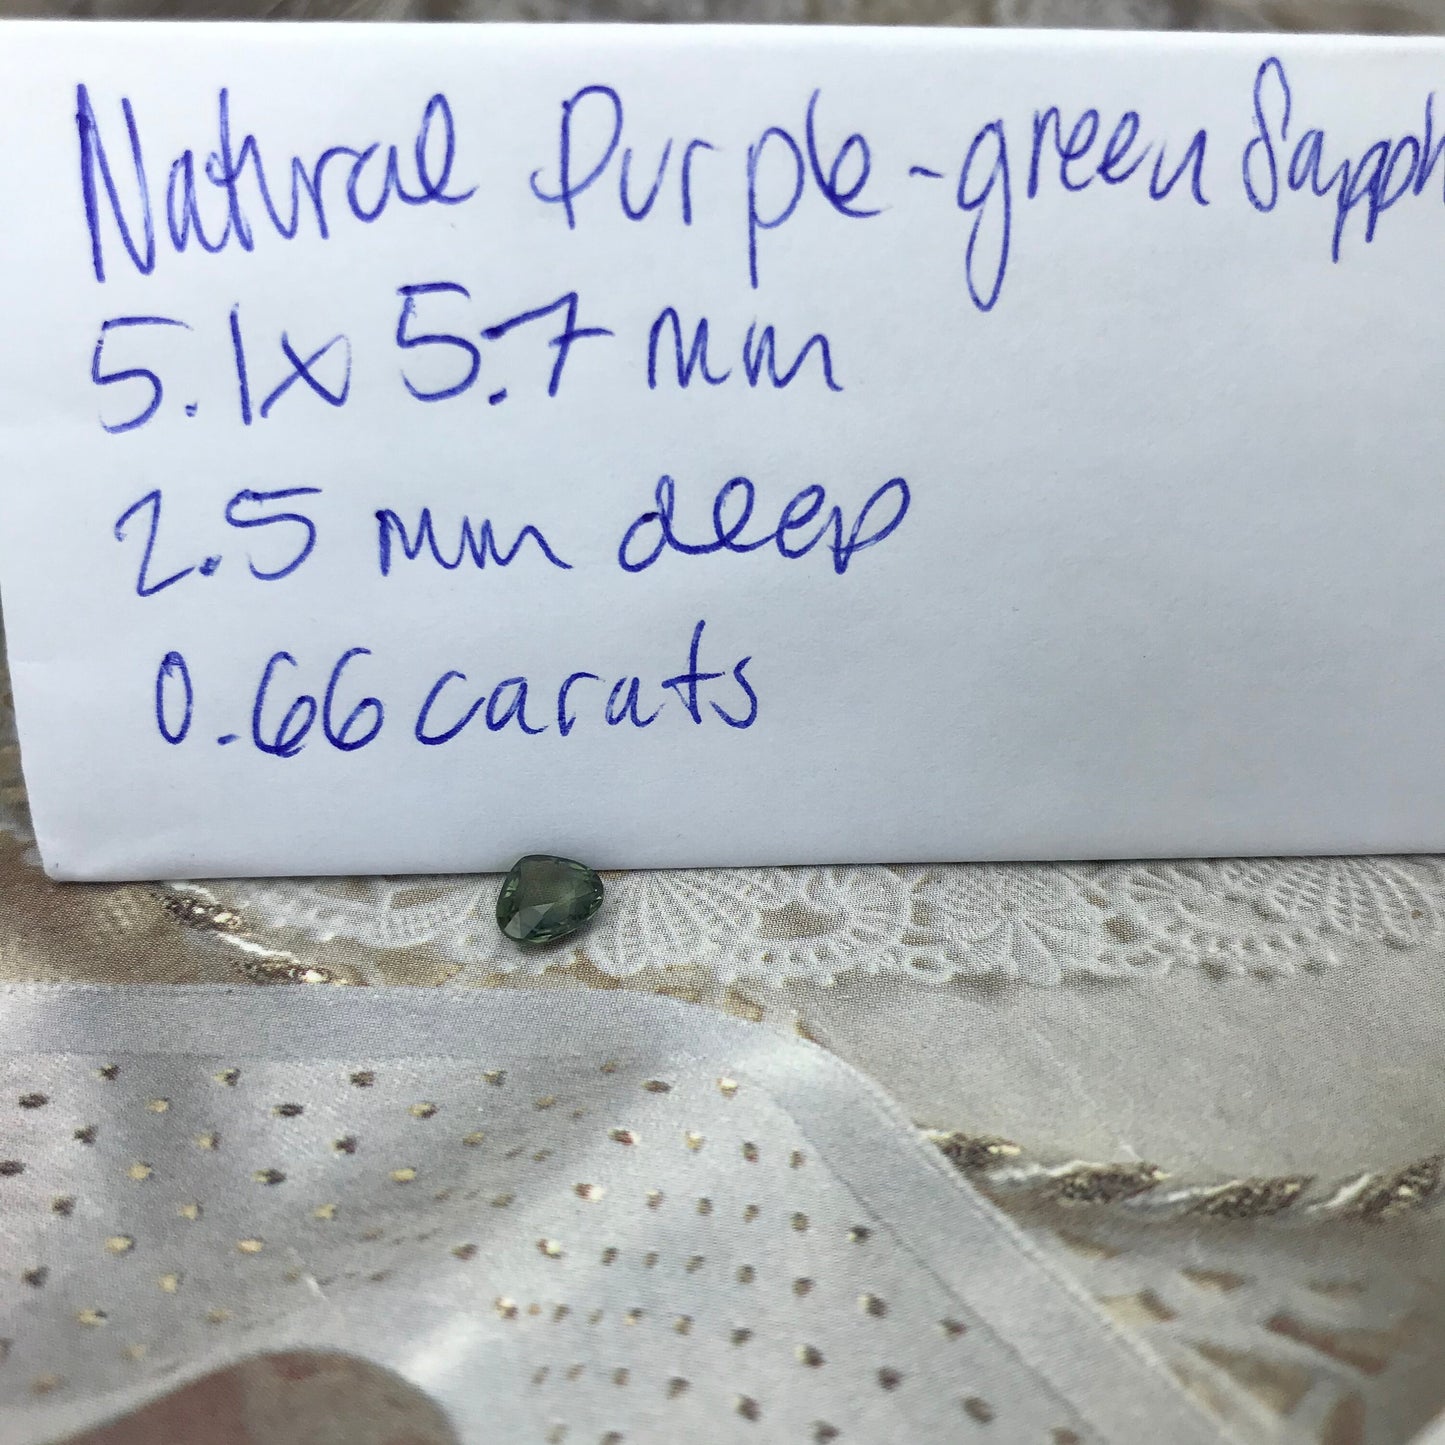 Natural Purple-green Sapph
5.1x5.7 mm
2.5 mm deep
0.66 carats